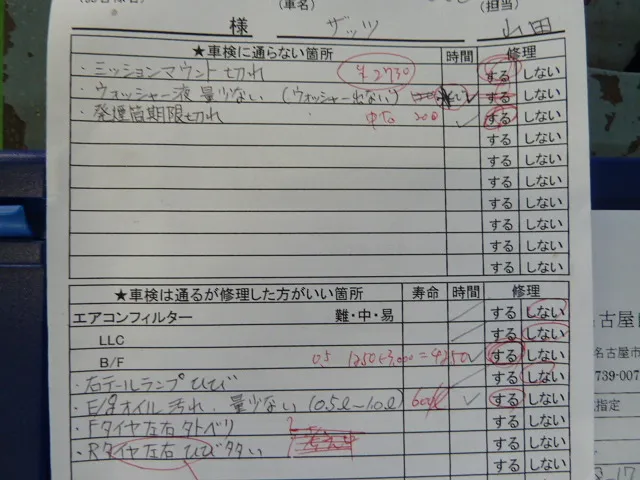 (車名) (担当)
様 ザッツ 山田
★車検に通らない箇所 時間 修理
・ミッションマウント切れ ¥2730 する しない
・ウォッシャー液量少ない (ウォッシャー出ない) する しない
・発煙筒期限切れ 200 する しない
する しない
する しない
する しない
する しない
する しない
する しない
する しない
★車検は通るが修理した方がいい箇所 寿命 時間 修理
エアコンフィルター 難・中・易 する しない
LLC する しない
B/F 0.5 1250+3,000=4250 する しない
・右テールランプひび する しない
・E/gオイル汚れ、量少ない (0.5ℓ~1.0ℓ) する しない
・Fタイヤ左右タトベリ する しない
・Rタイヤ左右ひび する しない
古屋
名古屋市
739-007
指定